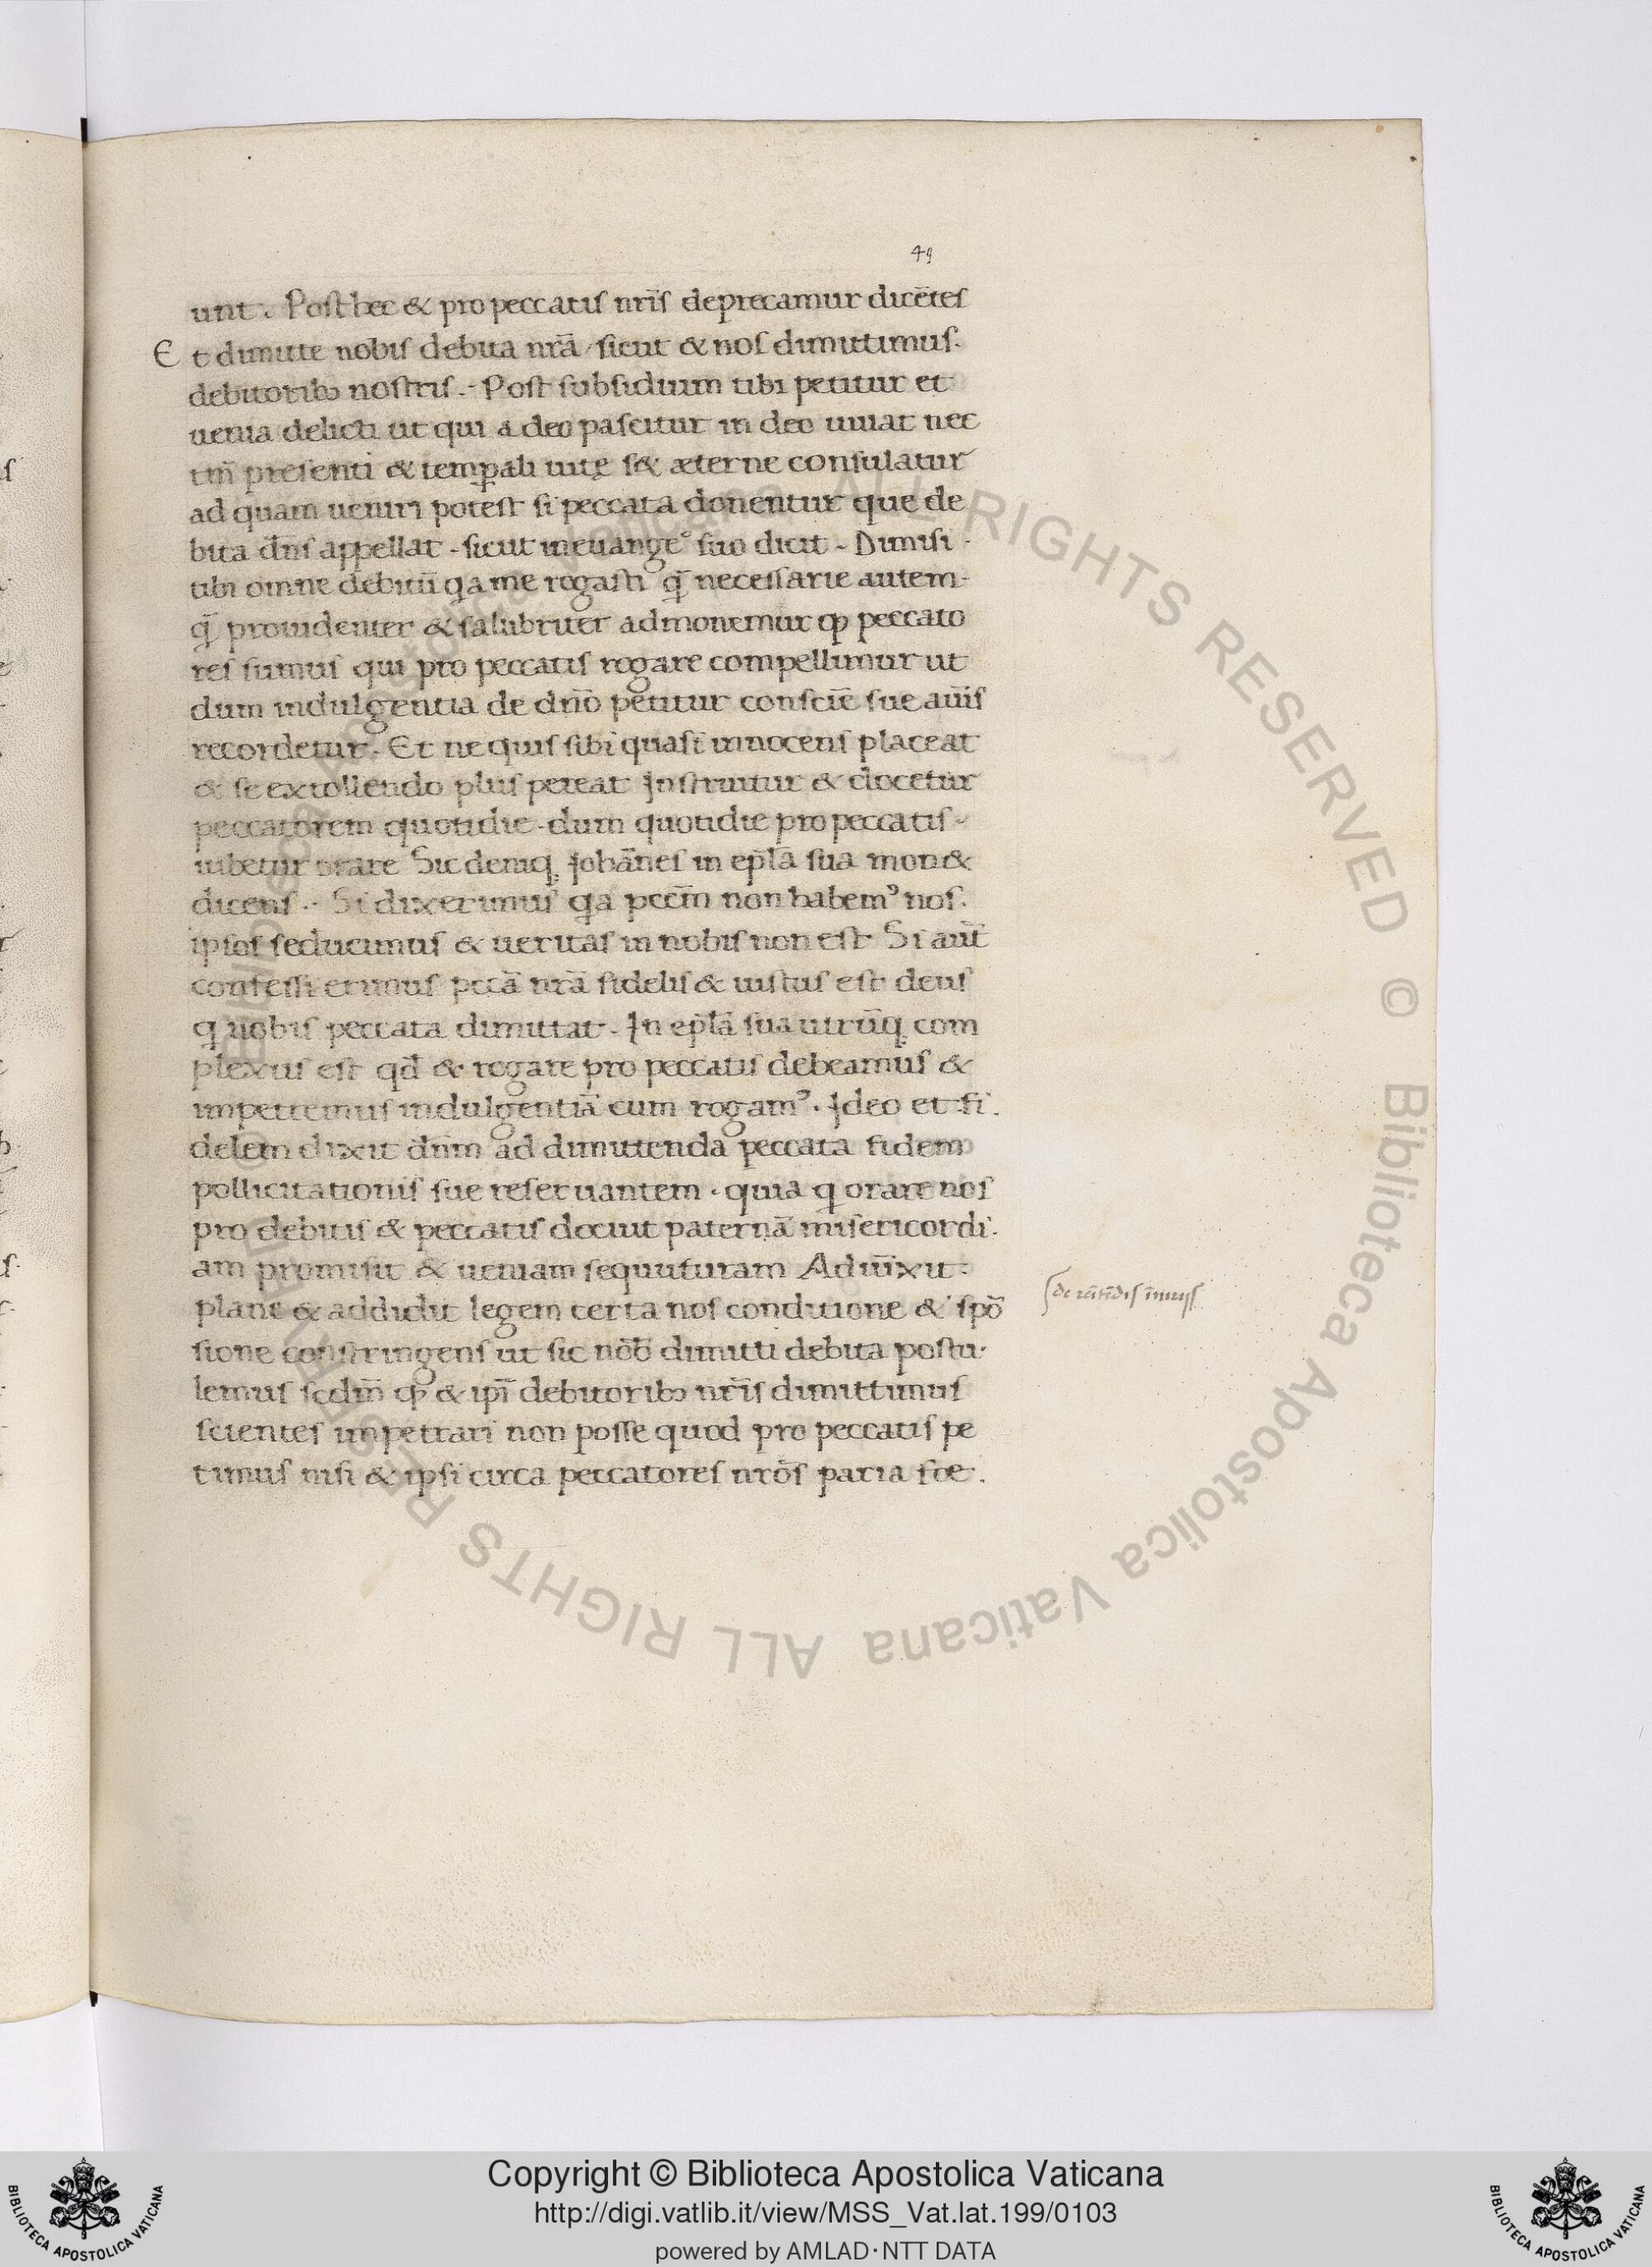 49
unt. Post hec & pro peccatis nr̄is deprecamur dicētes
Et dimitte nobis debita nr̄a / sicut & nos dimittimus.
debitoribꝫ nostris.- Post subsidium tibi petitur et
uenia delicti ut qui a deo pascitur in deo uiuat nec
tm̄ presenti & temꝑali uitę s& æterne consulatur
ad quam ueniri potest si peccata donentur que de
bita dn̄s appellat - sicut in euangeº suo dicit - Dimisi -
tibi omne debitū qa me rogasti q̄ necessarie autem-
q̄ prouidenter & salubriter admonemur ꝙ peccato
res sumus qui pro peccatis rogare compellimur ut
dum indulgentia de dn̄o petitur consciē sue
recordetur. Et ne quis sibi quasi innocens placeat
& se extollendo plus pereat Instruitur & docetur
peccatorem quotidie - dum quotidie pro peccatis -
iubetur orare Sic deniqꝫ Johānes in ep̄la sua mon&
dicens .- Si dixerimus qa pcc̄m non habemꝰ nos.
ipsos seducimus & ueritas in nobis non est Si aut̄
confessi erimus pccā nr̄a fidelis & iustus est deus
q nobis peccata dimittat. In ep̄la sua utrūqꝫ com
plexus est qd̄ & rogare pro peccatis debeamus &
impetremus indulgentiā cum rogamꝰ. Ideo et fi.
delem dixit dn̄m ad dimittenda peccata fidem
pollicitationis sue reseruantem . quia q orare nos
pro debitis & peccatis docuit paternā misericordi.
am promisit & ueniam sequuturam Adiūxit.
plane & addidit legem certa nos conditione & spō
sione constringens ut sic nōb dimitti debita postu.
lemus scdm̄ ꝙ & ipī debitoribꝫ nr̄is dimittimus
scientes impetrari non posse quod pro peccatis pe
timus nisi & ipsi circa peccatores nrōs paria fce.
ALL RIGHTS RESERVED © Biblioteca Apostolica Vaticana ALL RIGHTS RESERVED © Biblioteca Apostolica Vaticana
Copyright © Biblioteca Apostolica Vaticana
http://digi.vatlib.it/view/MSS_Vat.lat.199/0103
powered by AMLAD·NTT DATA
BIBLIOTECA APOSTOLICA VATICANA
BIBLIOTECA APOSTOLICA VATICANA